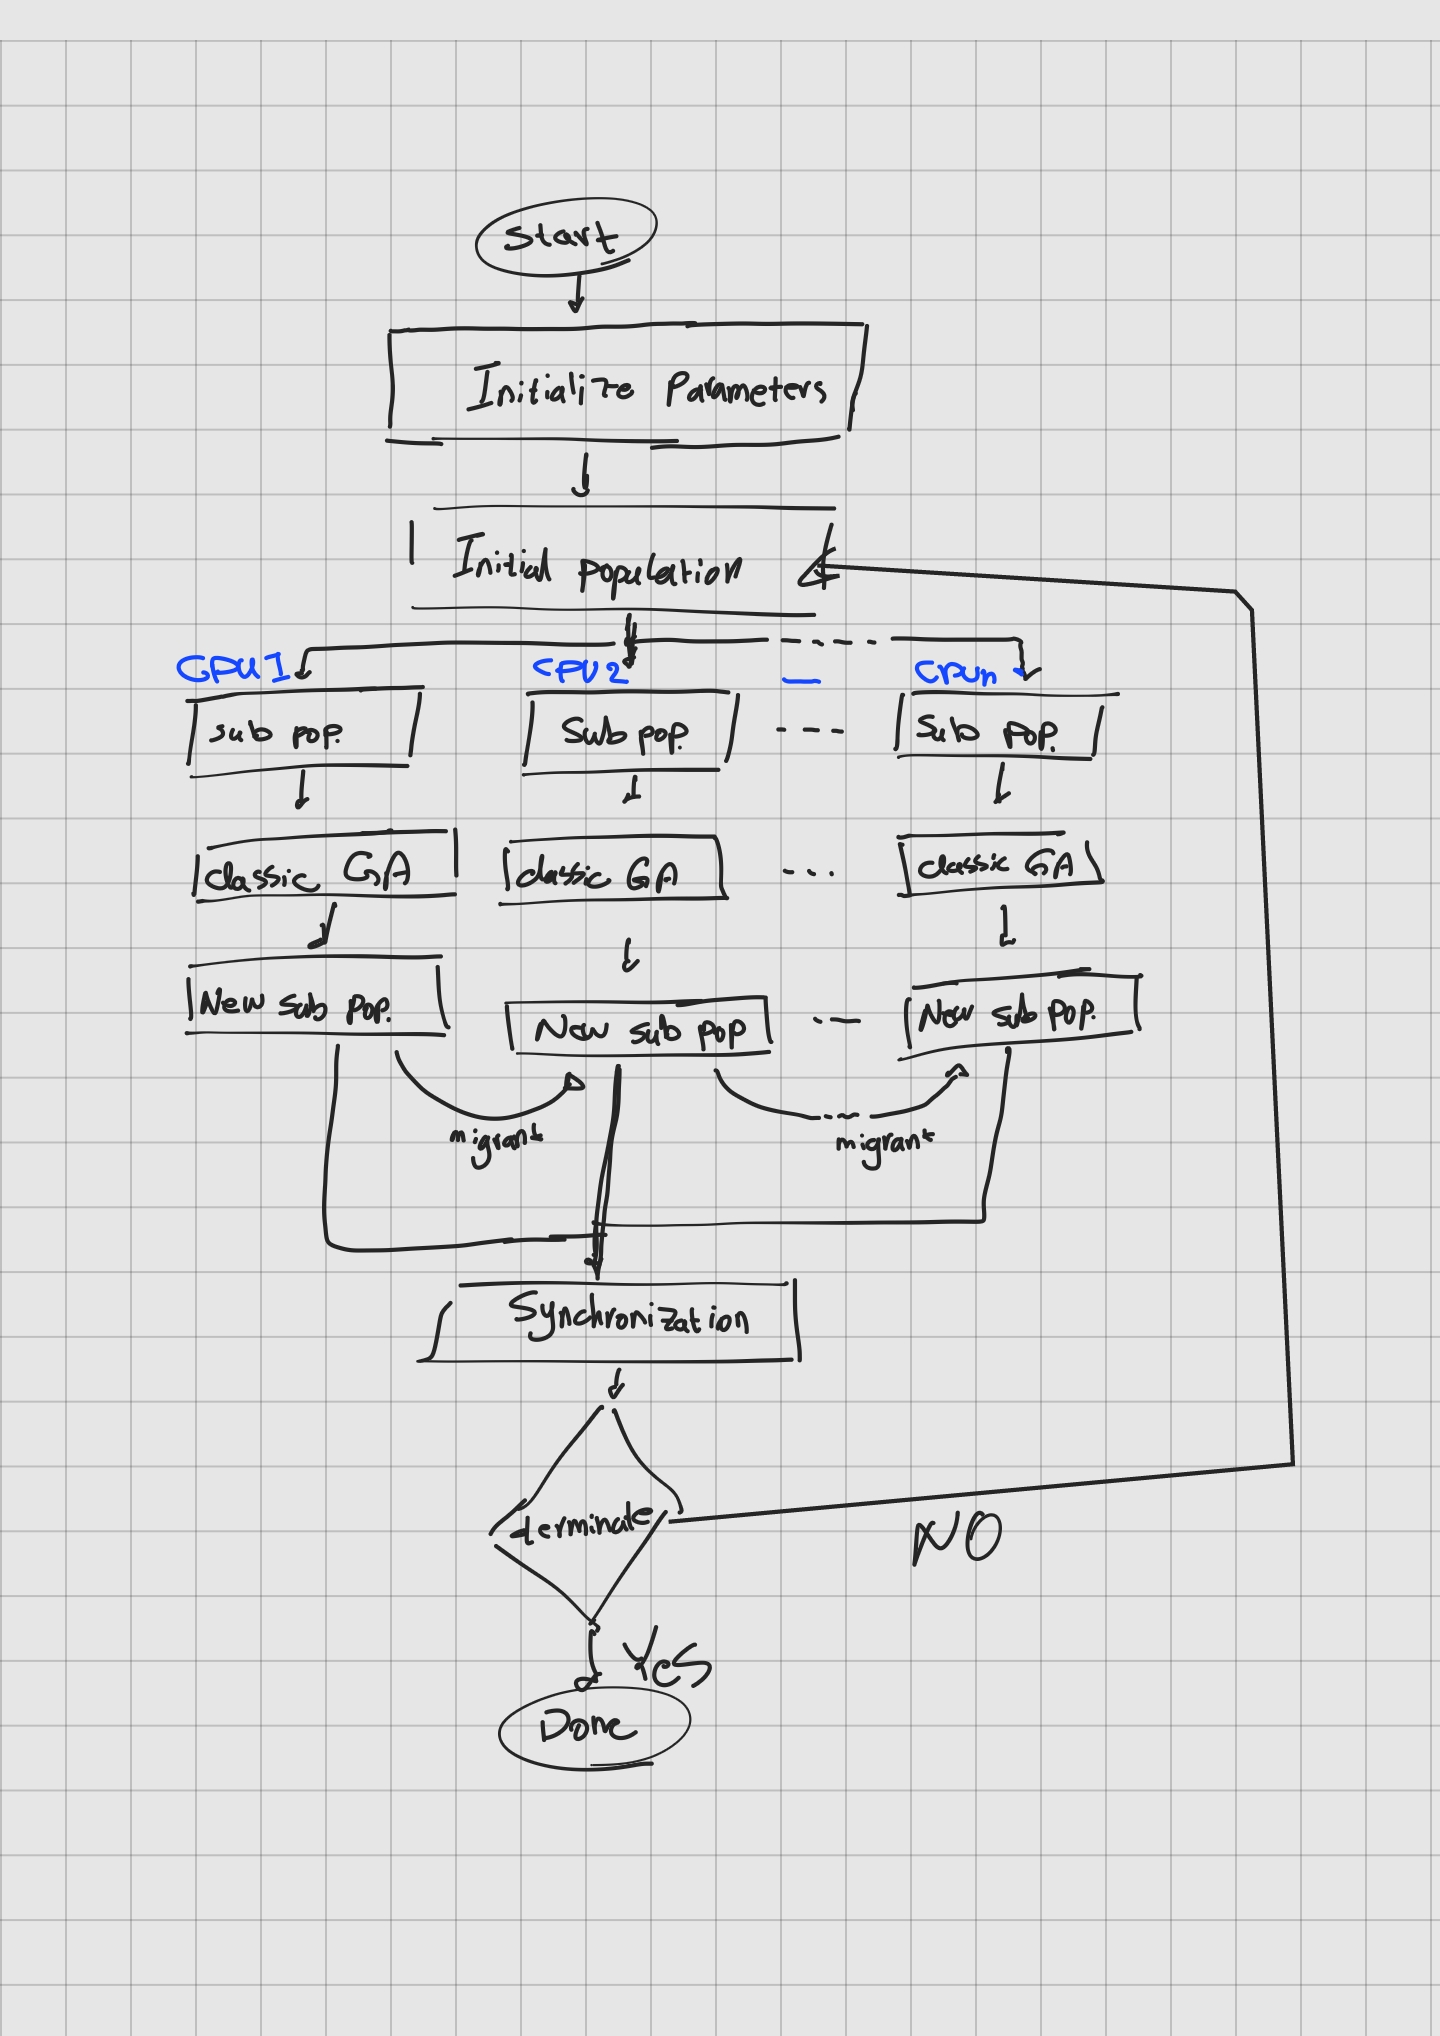 Start
Initialize Parameters
Initial population
CPU1 CPU2 CPUn
sub pop. Sub pop. Sub pop.
classic GA classic GA classic GA
New sub pop. New sub pop New sub pop.
migrant migrant
Synchronization
terminate
NO
Yes
Done